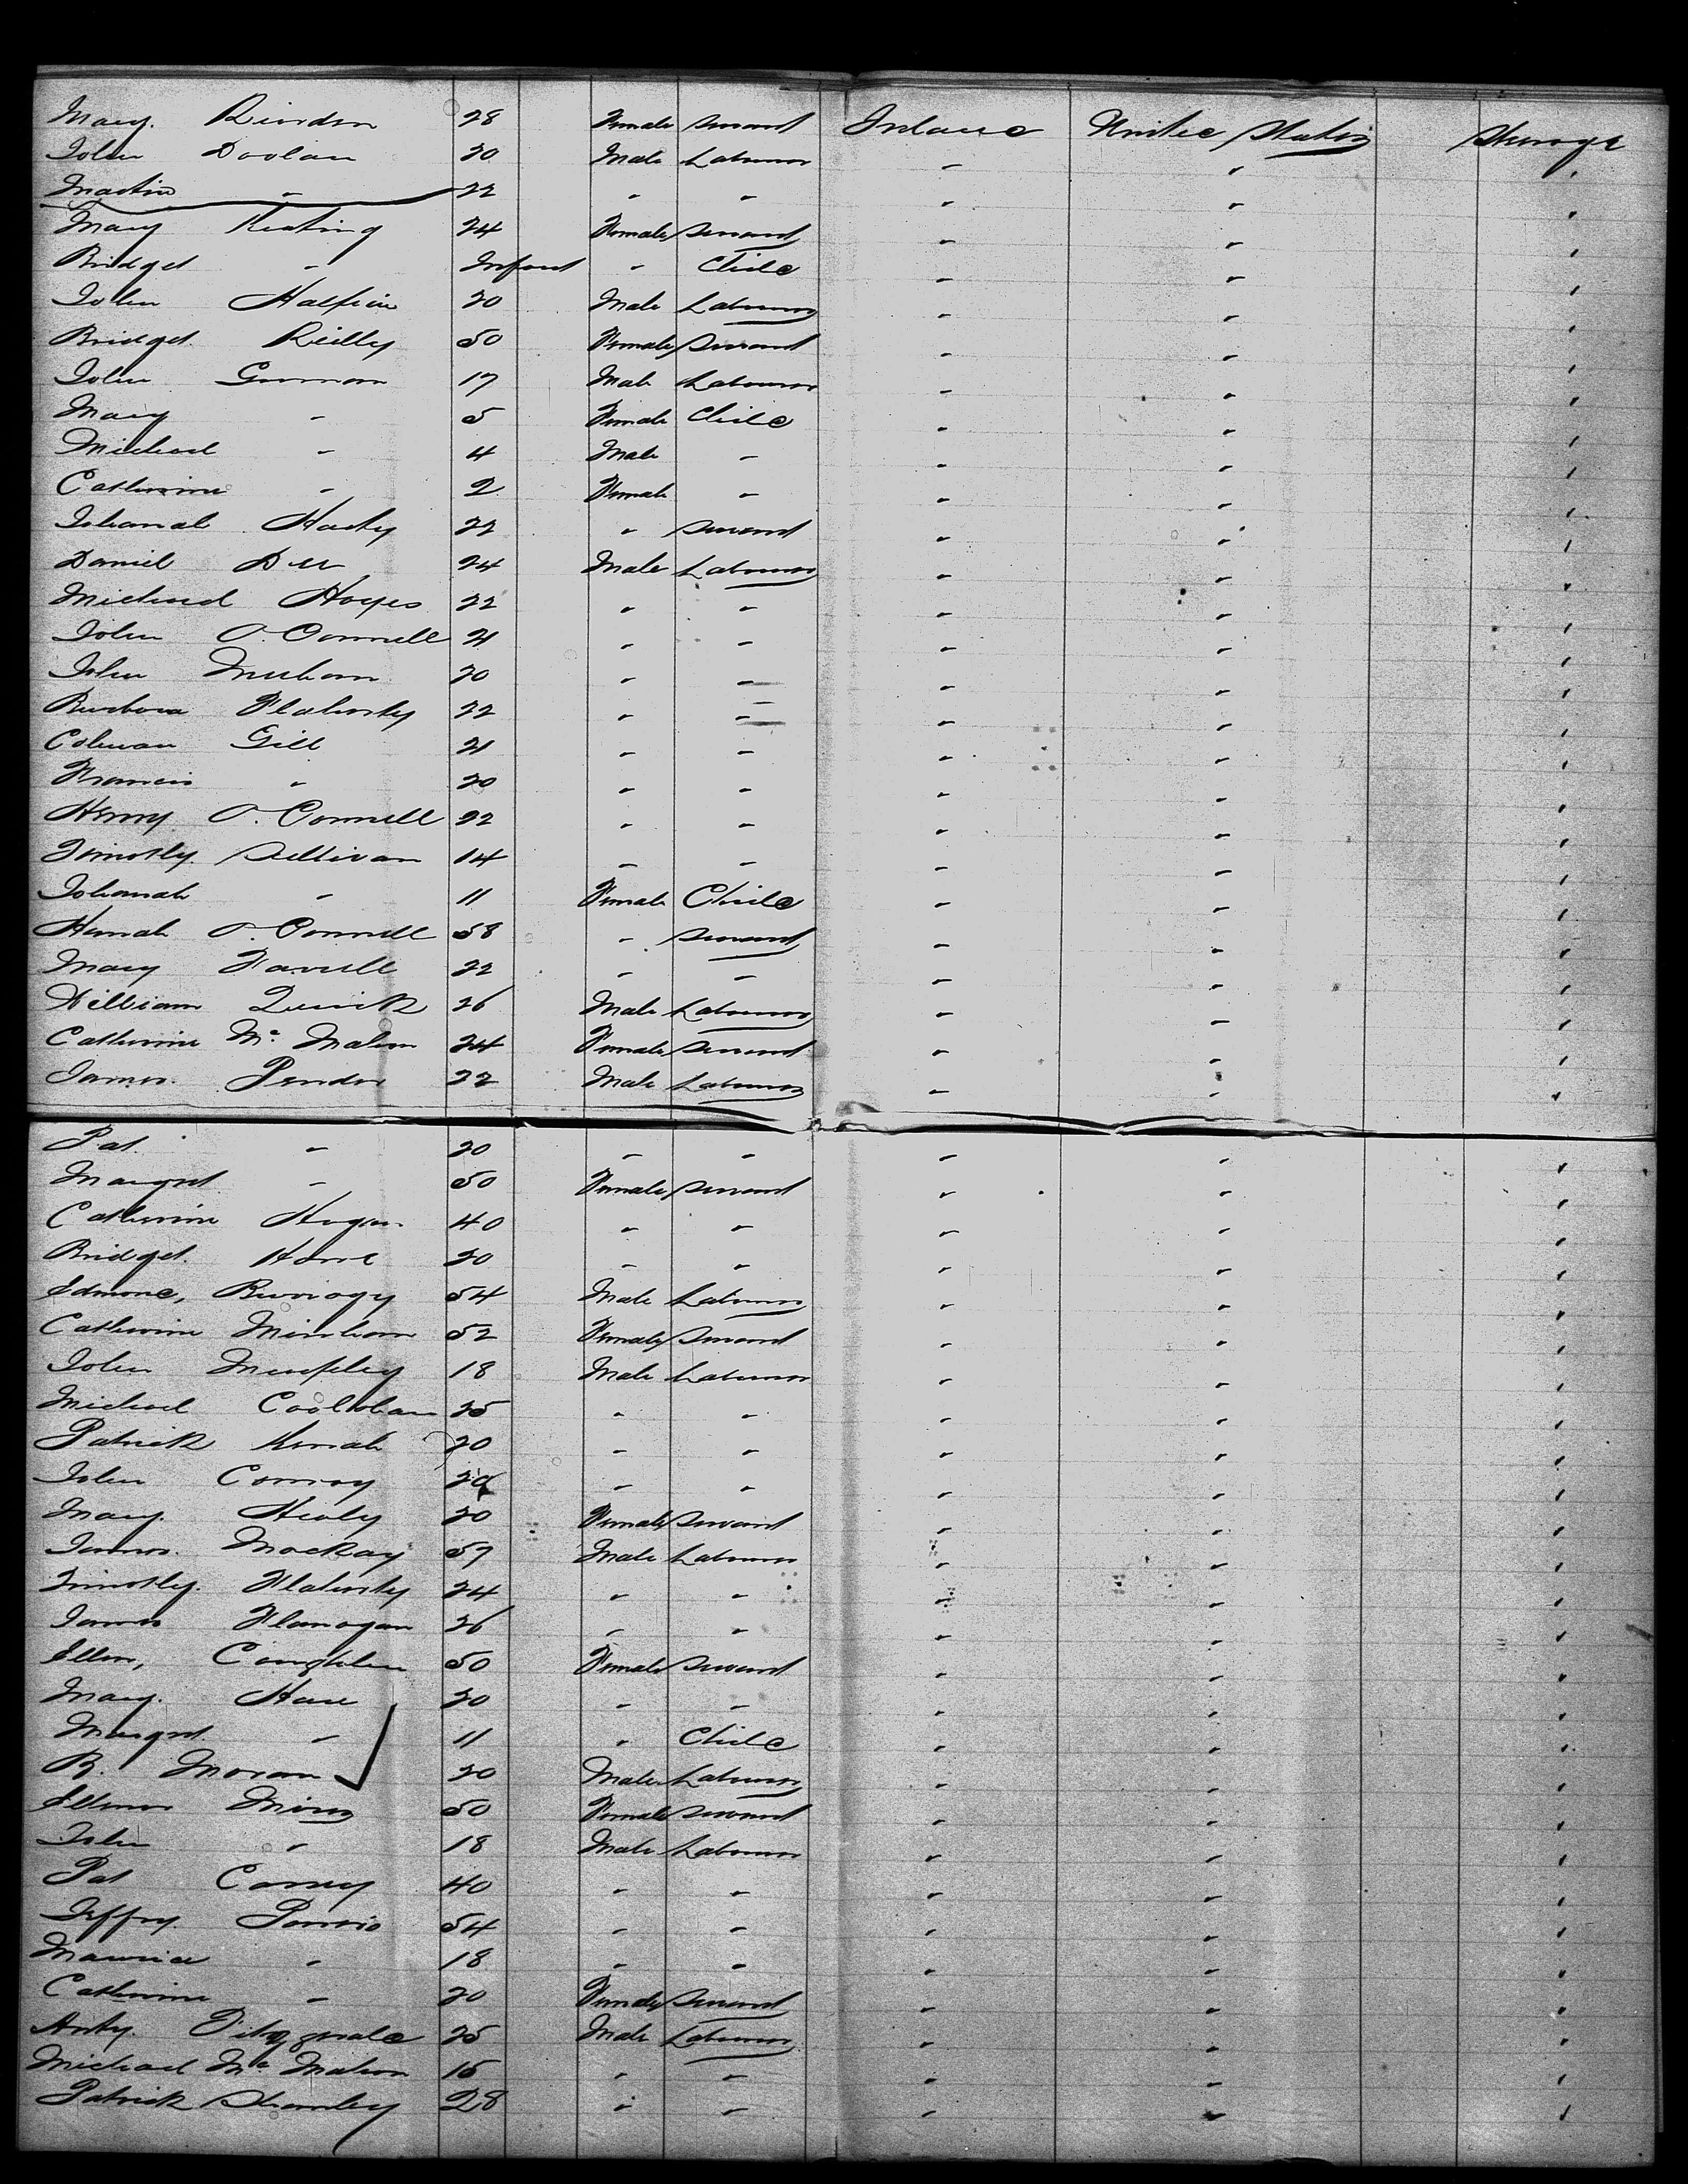 Mary Riordon 28 Female Servant Ireland United States Steerage
John Doolan 20 Male Labourer " " "
Martin " 22 " " " " "
Mary Keating 24 Female Servant " " "
Bridget " Infant " Child " " "
John Halfin 20 Male Labourer " " "
Bridget Reilly 50 Female Servant " " "
John Gorman 17 Male Labourer " " "
Mary " 5 Female Child " " "
Michael " 4 Male " " " "
Catherine " 2 Female " " " "
Johanah Hasty 22 " Servant " " "
Daniel 24 Male Labourer " " "
Michael Hayes 22 " " " " "
John O'Connell 21 " " " " "
John 20 " " " " "
Barbara Flaherty 22 " " " " "
Colman Gill 21 " " " " "
Francis " 20 " " " " "
Henry O'Connell 22 " " " " "
Timothy Sullivan 14 " " " " "
Johanah " 11 Female Child " " "
Hanah O'Connell 58 " Servant " " "
Mary Farrell 22 " " " " "
William Quirk 26 Male Labourer " " "
Catherine Mc Mahon 24 Female Servant " " "
James Pender 22 Male Labourer " " "
Pat " 20 " " " " "
Margret " 50 Female Servant " " "
Catherine Hogan 40 " " " " "
Bridget Hore 20 " " " " "
Edmond, 54 Male Labourer " " "
Catherine Minihan 52 Female Servant " " "
John Murphy 18 Male Labourer " " "
Michael Coolahan 25 " " " " "
Patrick 20 " " " " "
John Conroy " " " " "
Mary Healy 20 Female Servant " " "
James Mackay 57 Male Labourer " " "
Timothy Flaherty 24 " " " " "
James Flanagan 26 " " " " "
Ellen, Coughlen 50 Female Servant " " "
Mary Hare 20 " " " " "
Margret " 11 " Child " " "
B. Moran 20 Male Labourer " " "
Ellenor 50 Female Servant " " "
John " 18 Male Labourer " " "
Pat Carney 40 " " " " "
Jeffry 54 " " " " "
Maurice " 18 " " " " "
Catherine " 20 Female Servant " " "
Anty. Fitzgerald 25 Male Labourer " " "
Michael Mc Mahon 15 " " " " "
Patrick Stanley 28 " " " " "